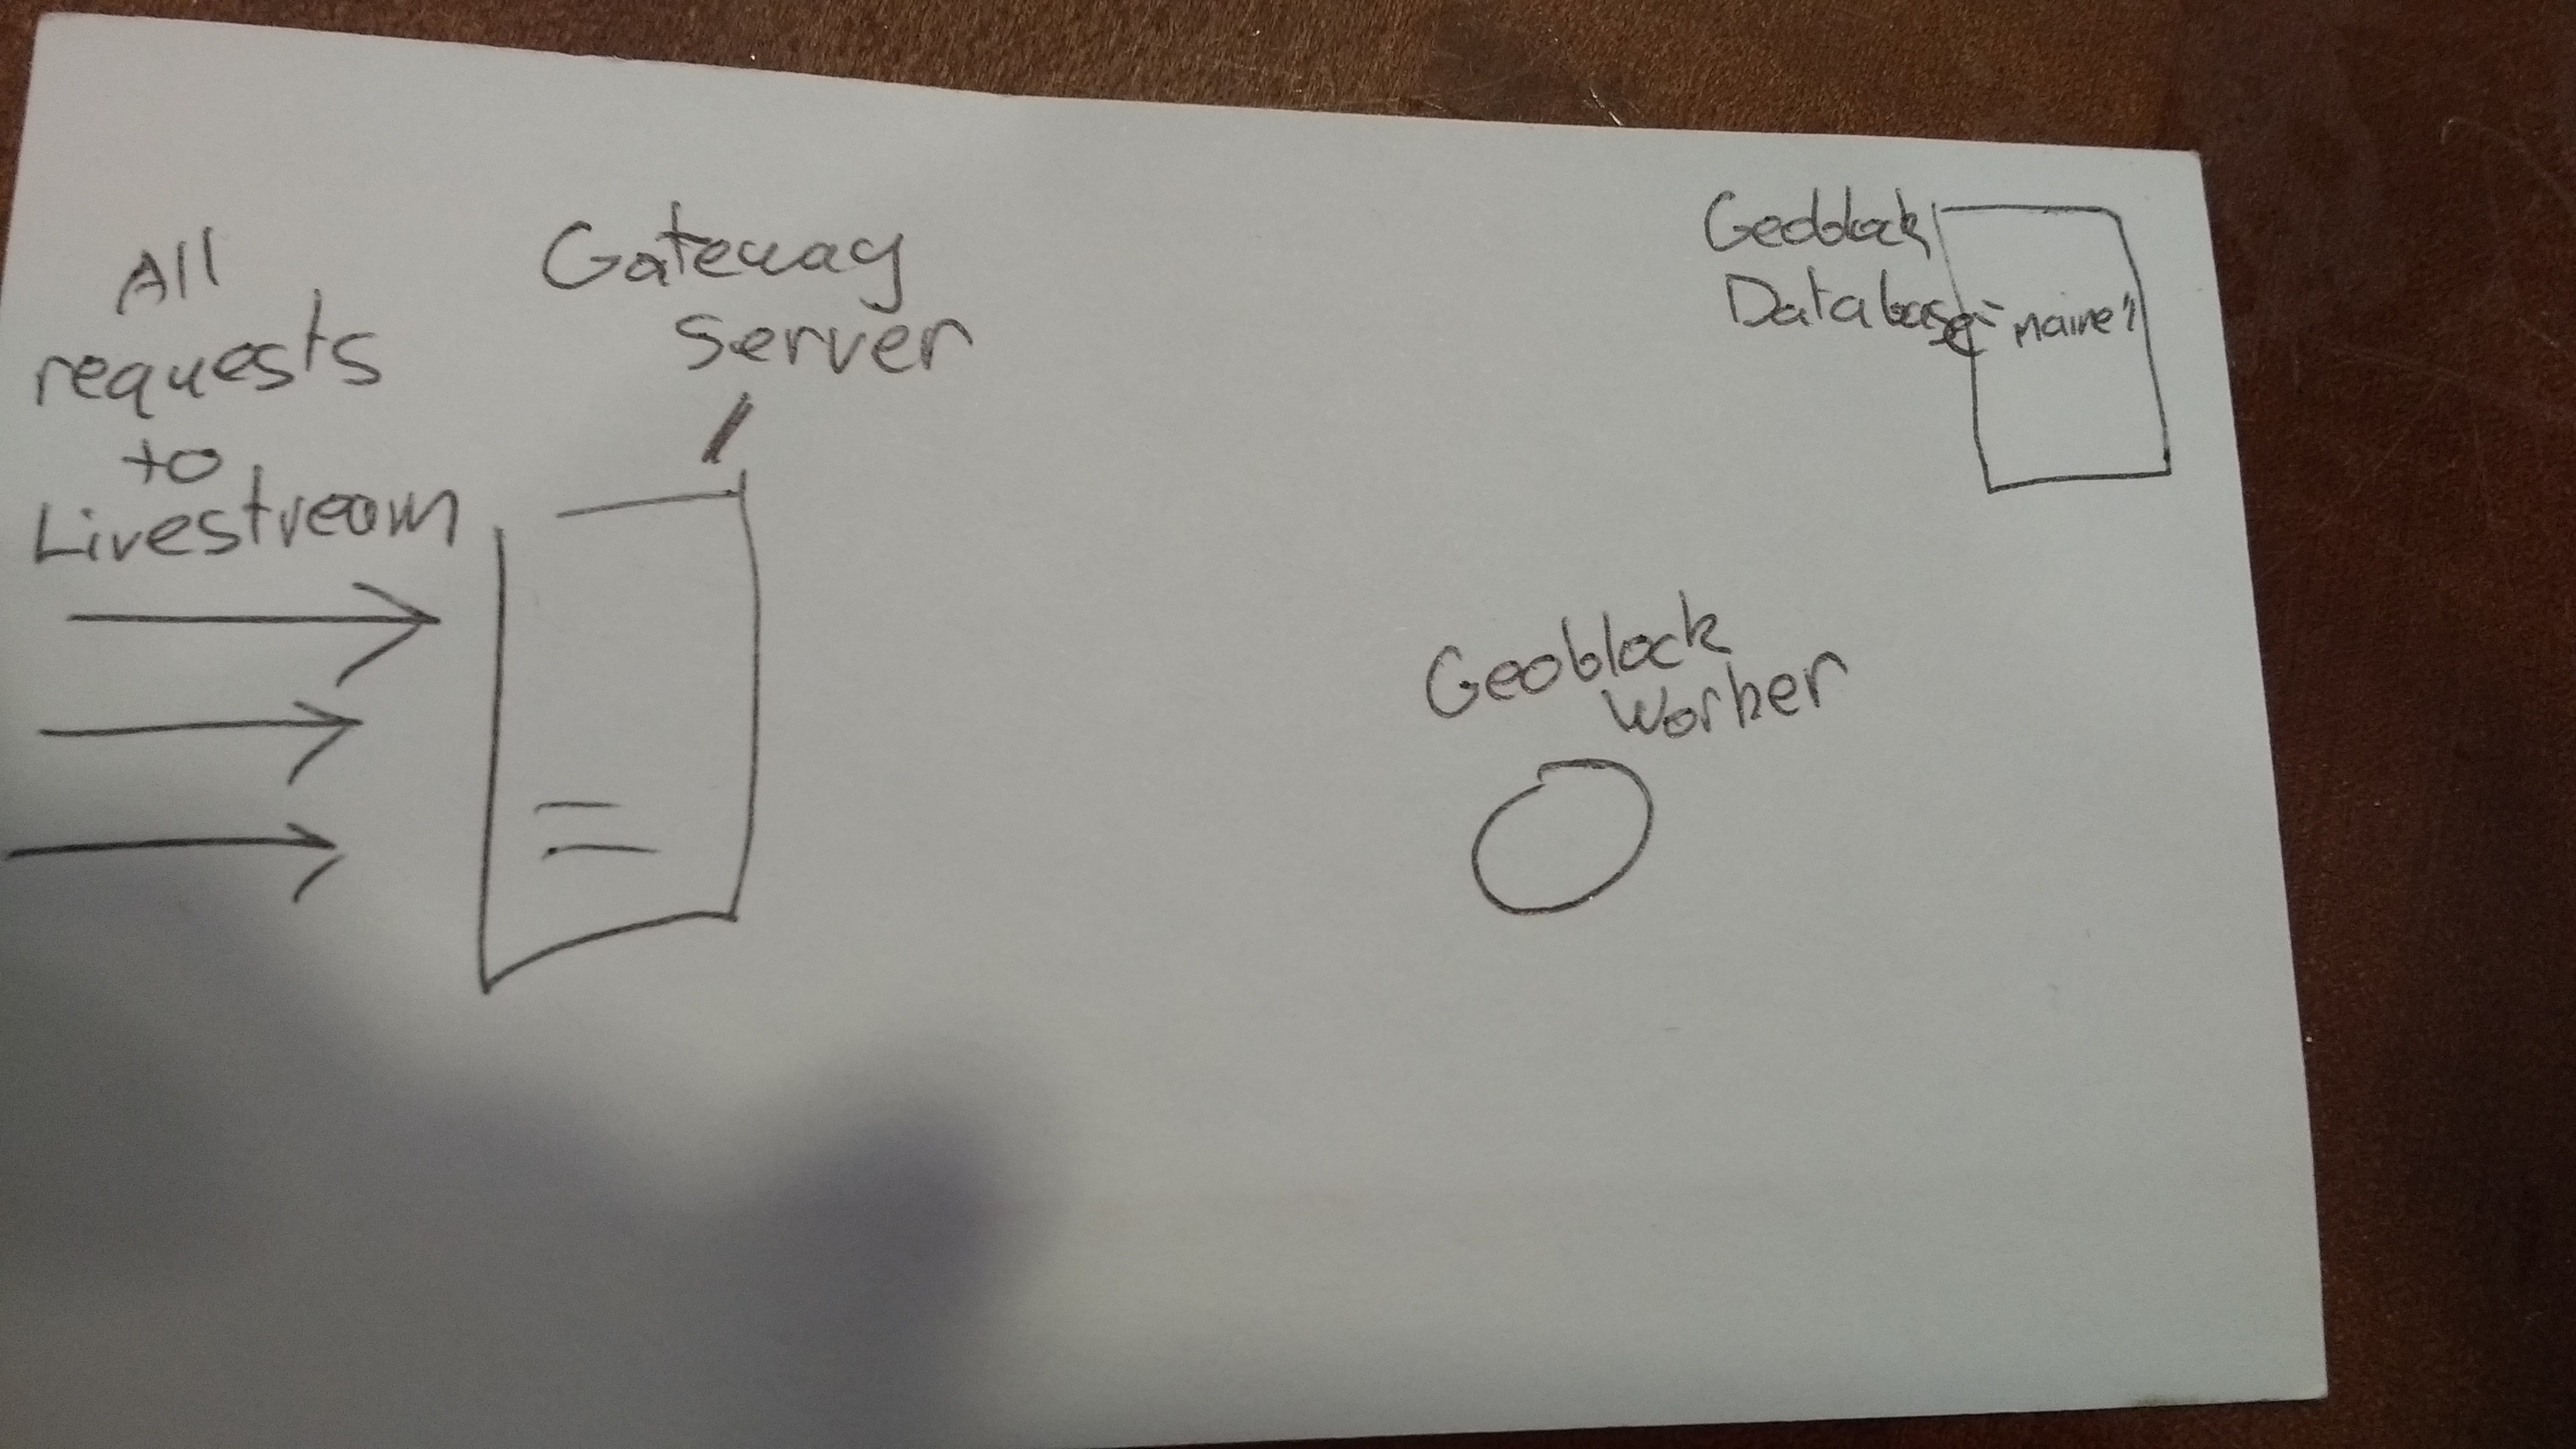 All
requests
to
Livestream
Gateway
Server
Geoblock
Database
"maine"
Geoblock
Worker